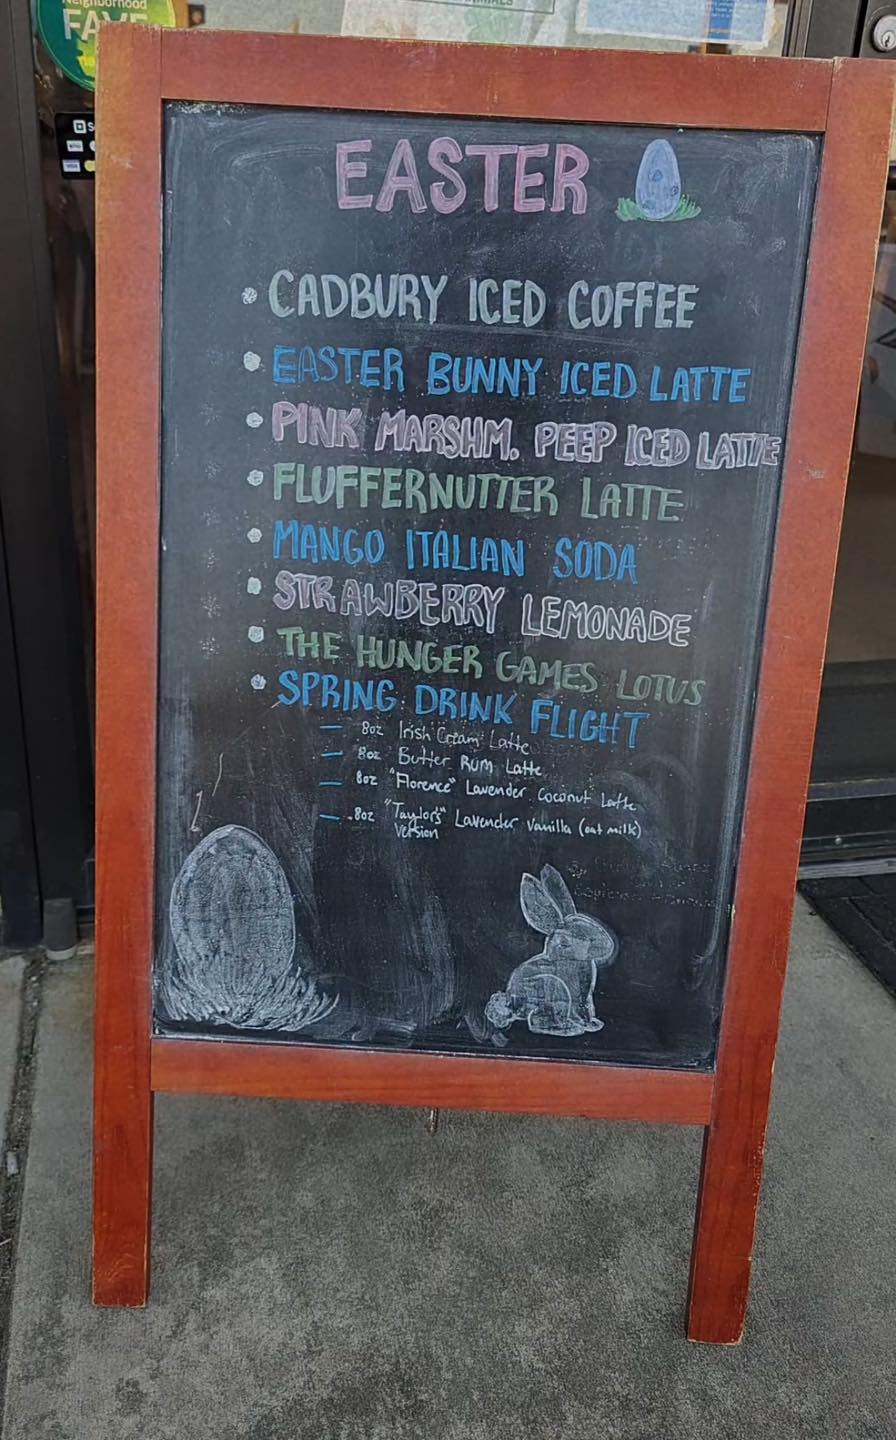 Neighborhood
FAVE
EASTER
• CADBURY ICED COFFEE
• EASTER BUNNY ICED LATTE
• PINK MARSHM. PEEP ICED LATTE
• FLUFFERNUTTER LATTE
• MANGO ITALIAN SODA
• STRAWBERRY LEMONADE
• THE HUNGER GAMES LOTUS
• SPRING DRINK FLIGHT
— 8oz Irish Cream Latte
— 8oz Butter Rum Latte
— 8oz "Florence" Lavender Coconut Latte
— .8oz "Taylor's" Lavender Vanilla (oat milk)
Version